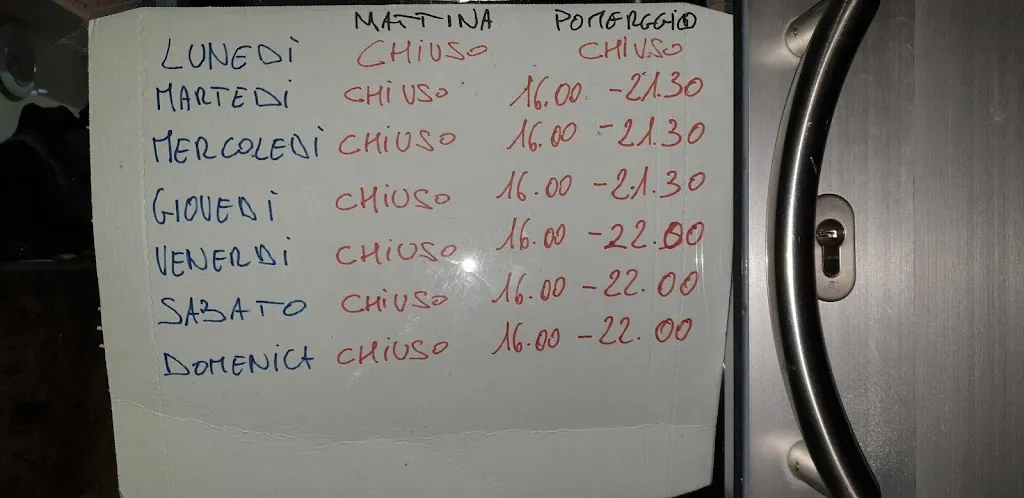 MATTINA POMERGGIO
LUNEDÌ CHIUSO CHIUSO
MARTEDÌ CHIUSO 16.00 - 21.30
MERCOLEDÌ CHIUSO 16.00 - 21.30
GIOVEDÌ CHIUSO 16.00 - 21.30
VENERDÌ CHIUSO 16.00 - 22.00
SABATO CHIUSO 16.00 - 22.00
DOMENICA CHIUSO 16.00 - 22.00